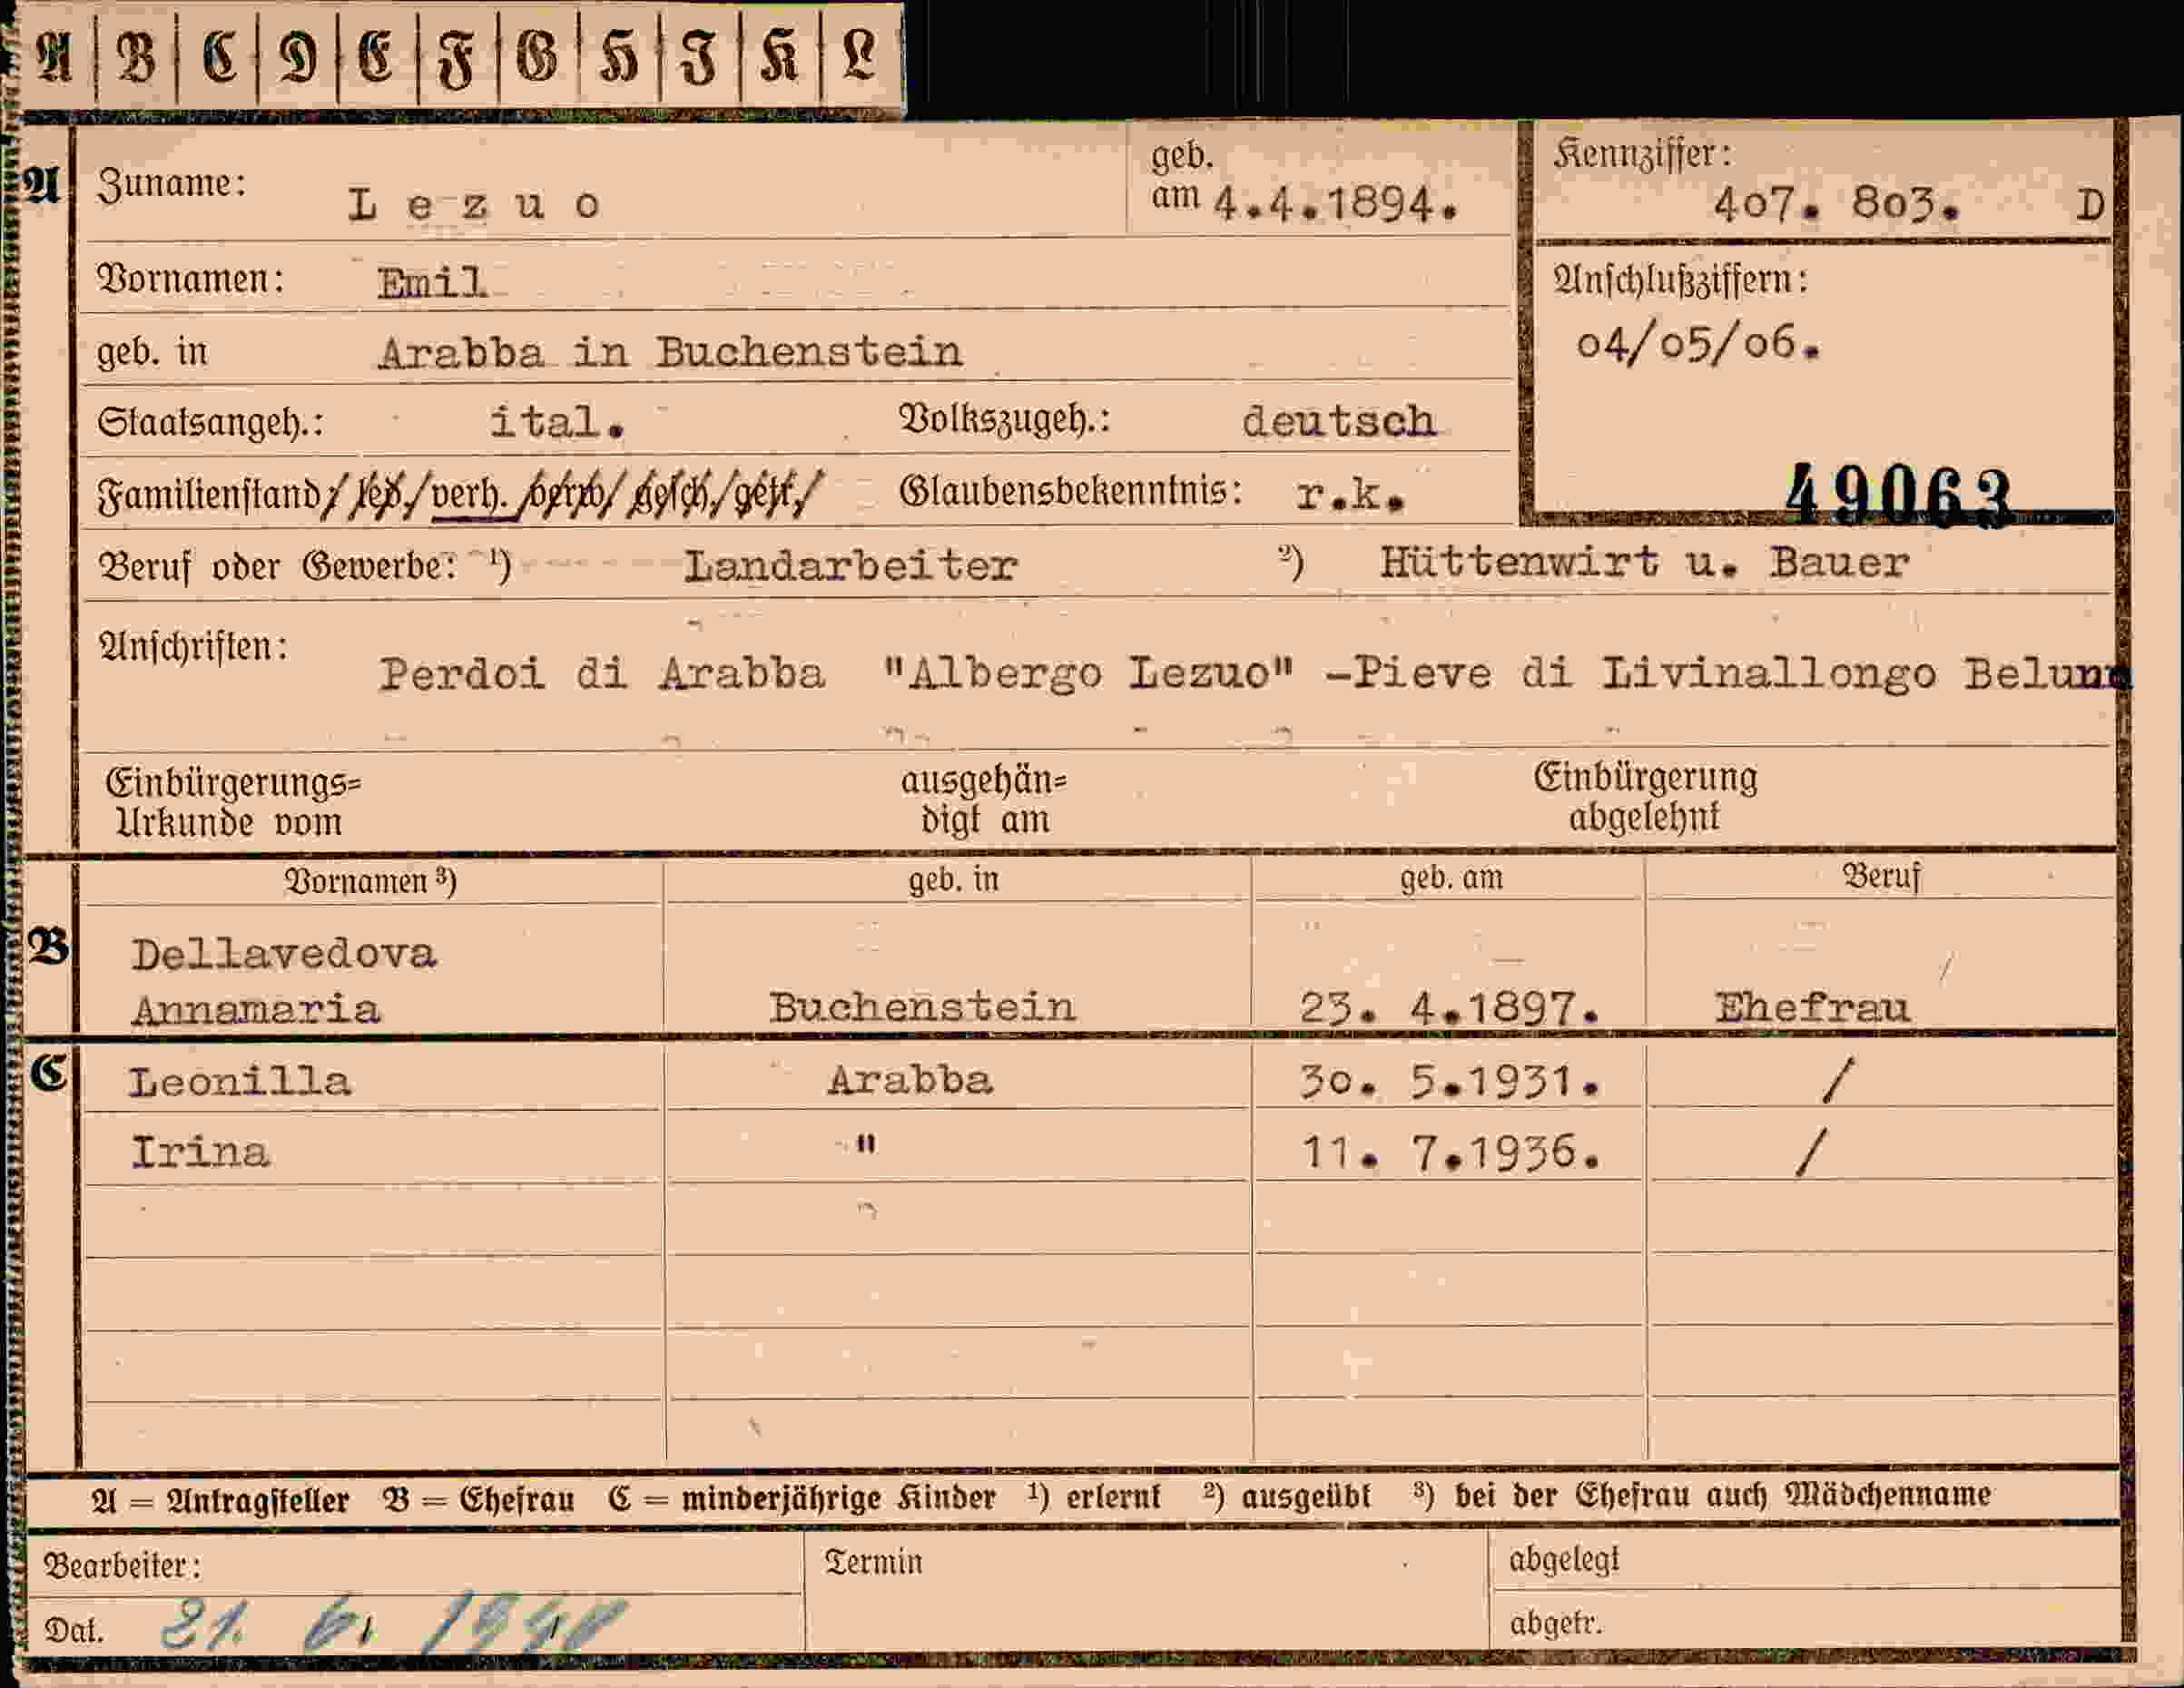 A | B | C | D | E | F | G | H | J | K | L
A Zuname: Lezuo geb. am 4.4.1894. Kennziffer: 407. 803. D
Vornamen: Emil Anschlußziffern:
geb. in Arabba in Buchenstein 04/05/06.
Staatsangeh.: ital. Volkszugeh.: deutsch
Familienstand/led./verh./verw/gesch./getr./ Glaubensbekenntnis: r.k. 49063
Beruf oder Gewerbe: ¹) Landarbeiter ²) Hüttenwirt u. Bauer
Anschriften: Perdoi di Arabba "Albergo Lezuo" -Pieve di Livinallongo Belun
Einbürgerungs= ausgehän= Einbürgerung
Urkunde vom digt am abgelehnt
Vornamen ³) geb. in geb. am Beruf
B Dellavedova
Annamaria Buchenstein 23. 4.1897. Ehefrau
C Leonilla Arabba 30. 5.1931. /
Irina " 11. 7.1936. /
A = Antragsteller B = Ehefrau C = minderjährige Kinder ¹) erlernt ²) ausgeübt ³) bei der Ehefrau auch Mädchenname
Bearbeiter: Termin abgelegt
Dat. 21. 6. 1940 abgetr.